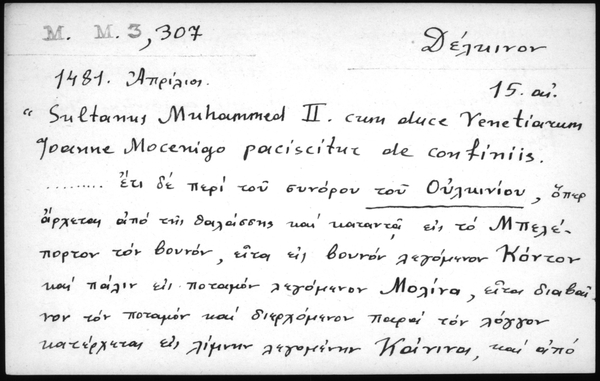 M. M. 3, 307
Δέλκινον
1481. Ἀπρίλιος.
15. αἰ.
" Sultanus Muhammed II. cum duce Venetiarum
Joanne Mocenigo paciscitur de confiniis.
......... ἔτι δέ περί τοῦ συνόρου τοῦ Οὐλκινίου, ὅπερ
ἄρχεται ἀπό τῆς θαλάσσης καί καταντᾷ εἰς τό Μπελέ-
πορτον τόν βουνόν, εἶτα εἰς βουνόν λεγόμενον Κόντον
καί πάλιν εἰς ποταμόν λεγόμενον Μολίνα, εἶτα διαβαῖ-
νον τόν ποταμόν καί διερχόμενον παρά τόν λόγγον
κατέρχεται εἰς λίμνην λεγομένην Κάνινα, καί ἀπό